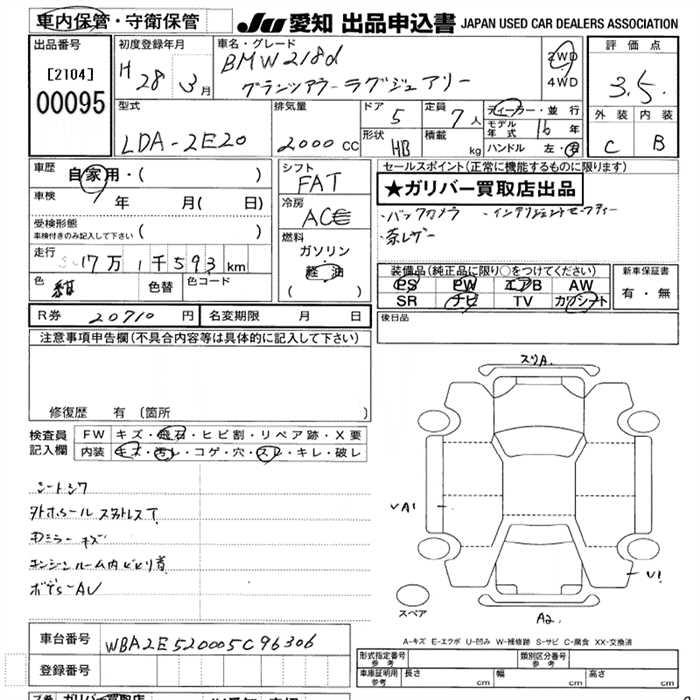 車内保管・守衛保管 JU 愛知 出品申込書 JAPAN USED CAR DEALERS ASSOCIATION
出品番号
[2104]
00095
初度登録年月
H 28年 3月
車名・グレード
BMW218d
グランツアラーラグジュアリー
2WD
4WD
評価点
3.5
外装 内装
C B
型式
LDA-2E20
排気量
2000 CC
ドア 5
定員 7人
形状 HB
積載 kg
ディーラー・並行
モデル年式 16年
ハンドル 左・右
車歴 自家用・( )
車検 年 月( 日)
受検形態
車検付きのみ記入して下さい ( )
走行 17万1千593km
色 紺 色替 色コード
シフト
FAT
冷房
ACE
燃料
ガソリン
・軽油
( )
セールスポイント(正常に機能するものに限ります)
★ガリバー買取店出品
・バックカメラ ・インテリジェントセーフティー
・茶レザー
装備品(純正品に限り○をつけてください)
PS PW エアB AW
SR ナビ TV カワシート
新車保証書
有・無
R券 20710 円 名変期限 月 日
後日品
注意事項申告欄(不具合内容等は具体的に記入して下さい)
修復歴 有 (箇所 )
検査員記入欄
FW キズ・飛石・ヒビ割・リペア跡・X要
内装 キズ・汚レ・コゲ・穴・スレ・キレ・破レ
シートシワ
タイヤホイール スタットレス T
Dミラー キズ
エンジンルーム内 ビビリ音
ボデー AU
スリA
VA1
V1
A2
スペア
A-キズ E-エクボ U-凹み W-補修跡 S-サビ C-腐食 XX-交換済
車台番号 WBA2E520005C96306
登録番号
形式指定番号 参考
類別区分番号 参考
車庫証明用 参考 長さ cm 幅 cm 高さ cm